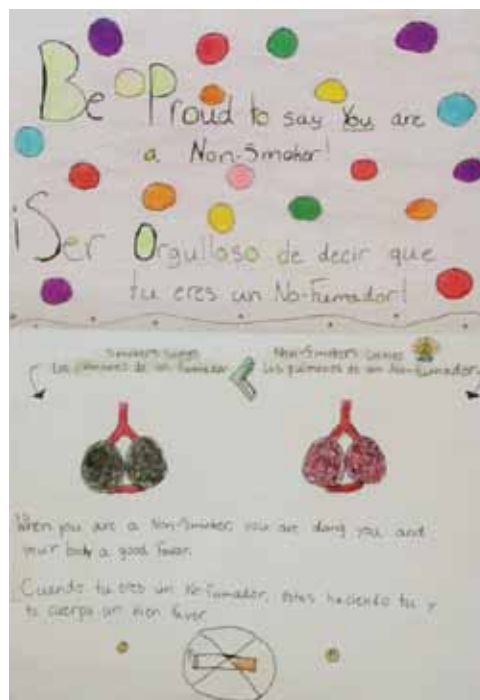 Be Proud to say You are
a Non-Smoker!
¡Ser Orgulloso de decir que
tu eres un No-Fumador!
Smokers Lungs
Los pulmones de un fumador
Non-Smokers Lungs
Los pulmones de un Non-fumador
When you are a Non-Smoker, you are doing you and
your body a good favor.
Cuando tu eres un No-Fumador, estas haciendo tu y
tu cuerpo un bien favor.